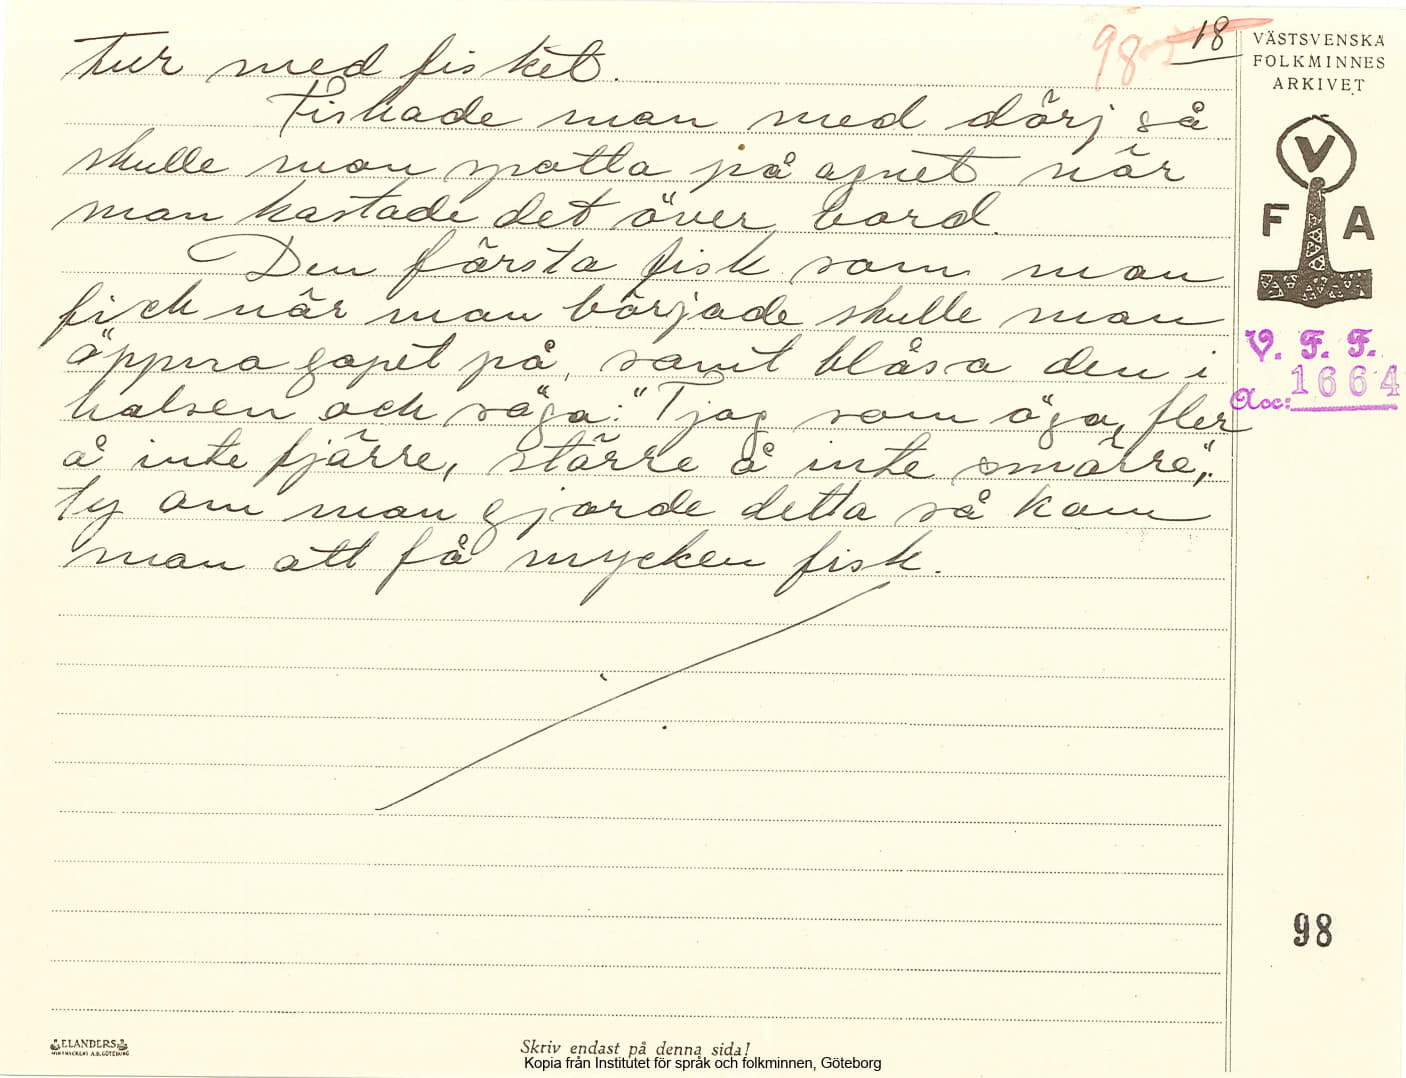 tur med fisket.
Fiskade man med dörj så
skulle man spotta på agnet när
man kastade det över bord.
Den första fisk som man
fick när man började skulle man
öppna gapet på, samt blåsa den i
halsen och säga: "Tjog som öga, fler
å inte fjärre, större å inte smärre",
ty om man gjorde detta så kom
man att få mycken fisk.
98
18
VÄSTSVENSKA
FOLKMINNES
ARKIVET
V
F A
V. F. F.
Acc: 1664
98
ELANDERS
Skriv endast på denna sida!
Kopia från Institutet för språk och folkminnen, Göteborg